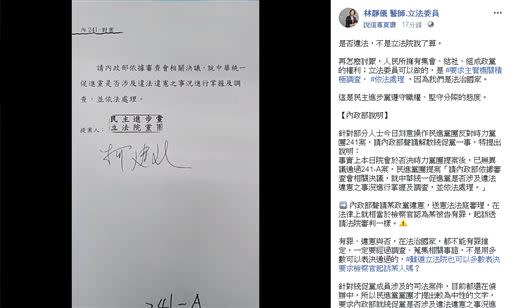 內 241-對案
請內政部依據審查會相關決議，就中華統一
促進黨是否涉及違法違憲之事況進行掌握及調
查，並依法處理。
提案人：
民主進步黨
立法院黨團
柯建銘
241-A
林靜儀 醫師.立法委員
說這專頁讚 · 17分鐘
是否違法，不是立法院說了算。
再怎麼討厭，人民所擁有集會、結社、組成政黨
的權利；立法委員可以做的，是 #要求主管機關積
極調查、#依法處理 ，因為我們是法治國家。
這是民主進步黨遵守職權、堅守分際的態度。
【內政部說明】
針對部分人士今日刻意操作民進黨團反對時力黨
團241案，請內政部聲請解散統促黨一事，特提出
說明：
事實上本日院會於否決時力黨團提案後，已無異
議通過241-A案，民進黨團提案「請內政部依據審
查會相關決議，就中華統一促進黨是否涉及違法
違憲之事況進行掌握及調查，並依法處理。」
內政部聲請某政黨違憲，送憲法法庭審理，在
法律上就相當於檢察官認為某被告有罪，起訴送
請法院審判一樣。
有罪、違憲與否，在法治國家，都不能有罪推
定，一定要經過調查、蒐集相關事證，不是用多
數可以表決通過的，
要求檢察官起訴某人嗎？
針對統促黨成員涉及的司法案件，目前都還在偵
辦中，所以民進黨黨團才提出較為中性的文字，
要求內政部就統促黨是否涉及違法違憲之事況進